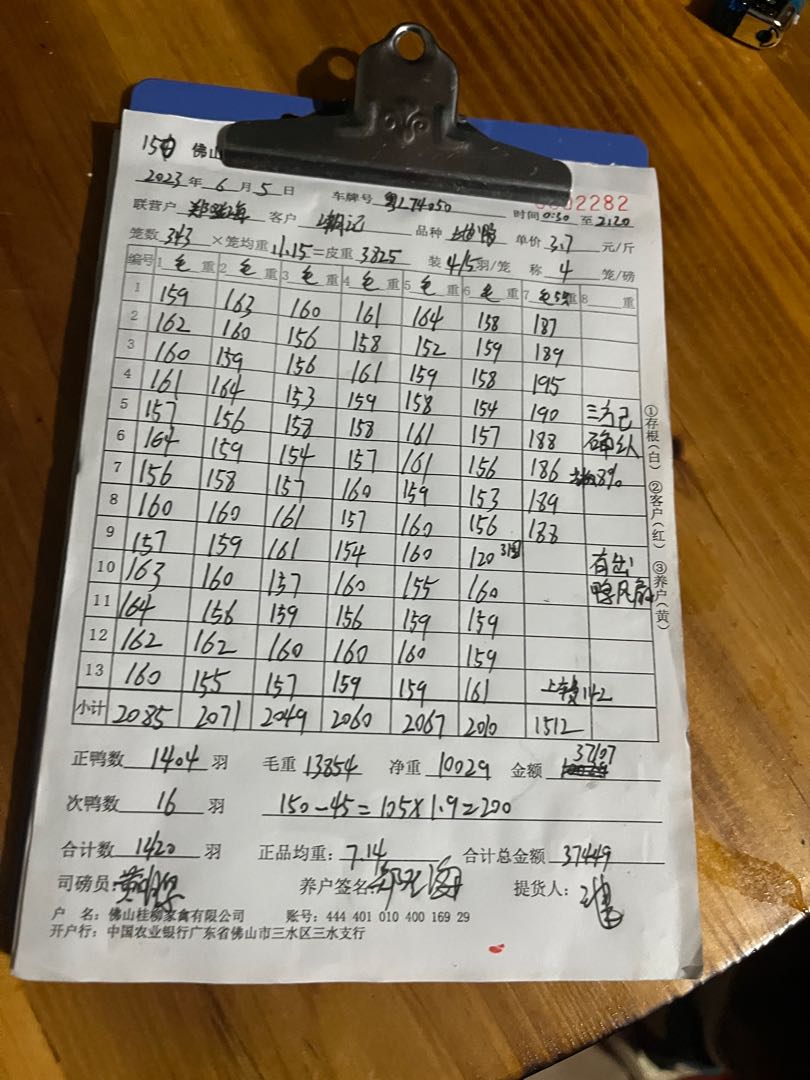 150 佛山
2023年 6月 5日 车牌号 粤L74050 0002282
联营户 客户 品种 单价 3.7 元/斤 时间 0:30 至 2:20
笼数 343 ×笼均重 11.15 =皮重 3825 装 4/5 羽/笼 称 4 笼/磅
编号 1 毛 重 2 毛 重 3 毛 重 4 毛 重 5 毛 重 6 毛 重 7 毛 重 8 重
1 159 163 160 161 164 158 187
2 162 160 156 158 152 159 189
3 160 159 156 161 159 158 195
4 161 164 153 159 158 154 190 三方已
5 157 156 158 158 161 157 188 确认
6 164 159 154 157 161 156 186 8%
7 156 158 157 160 159 153 189
8 160 160 161 157 160 156 188
9 157 159 161 154 160 120 3笼 有出
10 163 160 157 160 155 160 鸭风
11 164 156 159 156 159 159
12 162 162 160 160 160 159
13 160 155 157 159 159 161 上车 142
小计 2085 2071 2049 2060 2067 2010 1512
①存根(白) ②客户(红) ③养户(黄)
正鸭数 1404 羽 毛重 13854 净重 10029 金额 37107
次鸭数 16 羽 150-45=105×1.9=200
合计数 1420 羽 正品均重: 7.14 合计总金额 37449
司磅员: 养户签名: 提货人:
户 名: 佛山桂柳家禽有限公司 账号: 444 401 010 400 169 29
开户行: 中国农业银行广东省佛山市三水区三水支行